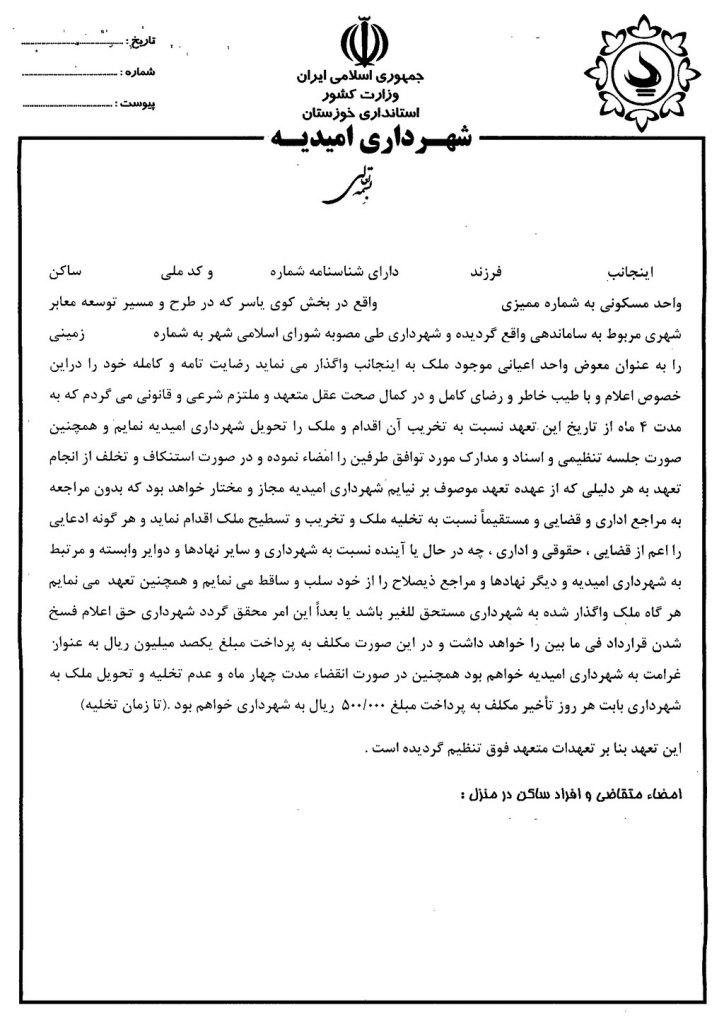 جمهوری اسلامی ایران
وزارت کشور
استانداری خوزستان
شهرداری امیدیه
تاریخ :
شماره :
پیوست :
بسمه تعالی
اینجانب فرزند دارای شناسنامه شماره و کد ملی ساکن
واحد مسکونی به شماره ممیزی واقع در بخش کوی یاسر که در طرح و مسیر توسعه معابر
شهری مربوط به ساماندهی واقع گردیده و شهرداری طی مصوبه شورای اسلامی شهر به شماره زمینی
را به عنوان معوض واحد اعیانی موجود ملک به اینجانب واگذار می نماید رضایت تامه و کامله خود را دراین
خصوص اعلام و با طیب خاطر و رضای کامل و در کمال صحت عقل متعهد و ملتزم شرعی و قانونی می گردم که به
مدت ۴ ماه از تاریخ این تعهد نسبت به تخریب آن اقدام و ملک را تحویل شهرداری امیدیه نمایم و همچنین
صورت جلسه تنظیمی و اسناد و مدارک مورد توافق طرفین را امضاء نموده و در صورت استنکاف و تخلف از انجام
تعهد به هر دلیلی که از عهده تعهد موصوف بر نیایم شهرداری امیدیه مجاز و مختار خواهد بود که بدون مراجعه
به مراجع اداری و قضایی و مستقیماً نسبت به تخلیه ملک و تخریب و تسطیح ملک اقدام نماید و هر گونه ادعایی
را اعم از قضایی ، حقوقی و اداری ، چه در حال یا آینده نسبت به شهرداری و سایر نهادها و دوایر وابسته و مرتبط
به شهرداری امیدیه و دیگر نهادها و مراجع ذیصلاح را از خود سلب و ساقط می نمایم و همچنین تعهد می نمایم
هر گاه ملک واگذار شده به شهرداری مستحق للغیر باشد یا بعداً این امر محقق گردد شهرداری حق اعلام فسخ
شدن قرارداد فی ما بین را خواهد داشت و در این صورت مکلف به پرداخت مبلغ یکصد میلیون ریال به عنوان
غرامت به شهرداری امیدیه خواهم بود همچنین در صورت انقضاء مدت چهار ماه و عدم تخلیه و تحویل ملک به
شهرداری بابت هر روز تأخیر مکلف به پرداخت مبلغ ۵۰۰/۰۰۰ ریال به شهرداری خواهم بود .(تا زمان تخلیه)
این تعهد بنا بر تعهدات متعهد فوق تنظیم گردیده است .
امضاء متقاضی و افراد ساکن در منزل :